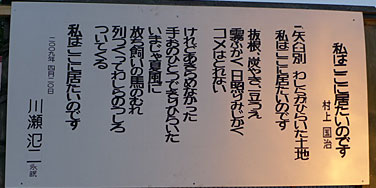 私はここに居たいのです
村上国治
ニ矢臼別 わしたちがひらいた土地
私はここに居たいのです
抜根、炭やき、豆うえ
霧ふかく、日照りみじかく
コメはとれない
けれどあきらめなかった
手おのひとつできりひらいた
いちど夏風に
放牧飼いの馬のむれ
列つくってわしらのうしろ
ついてくる
私はここに居たいのです
二〇〇九年 四月二〇日
川瀬氾二